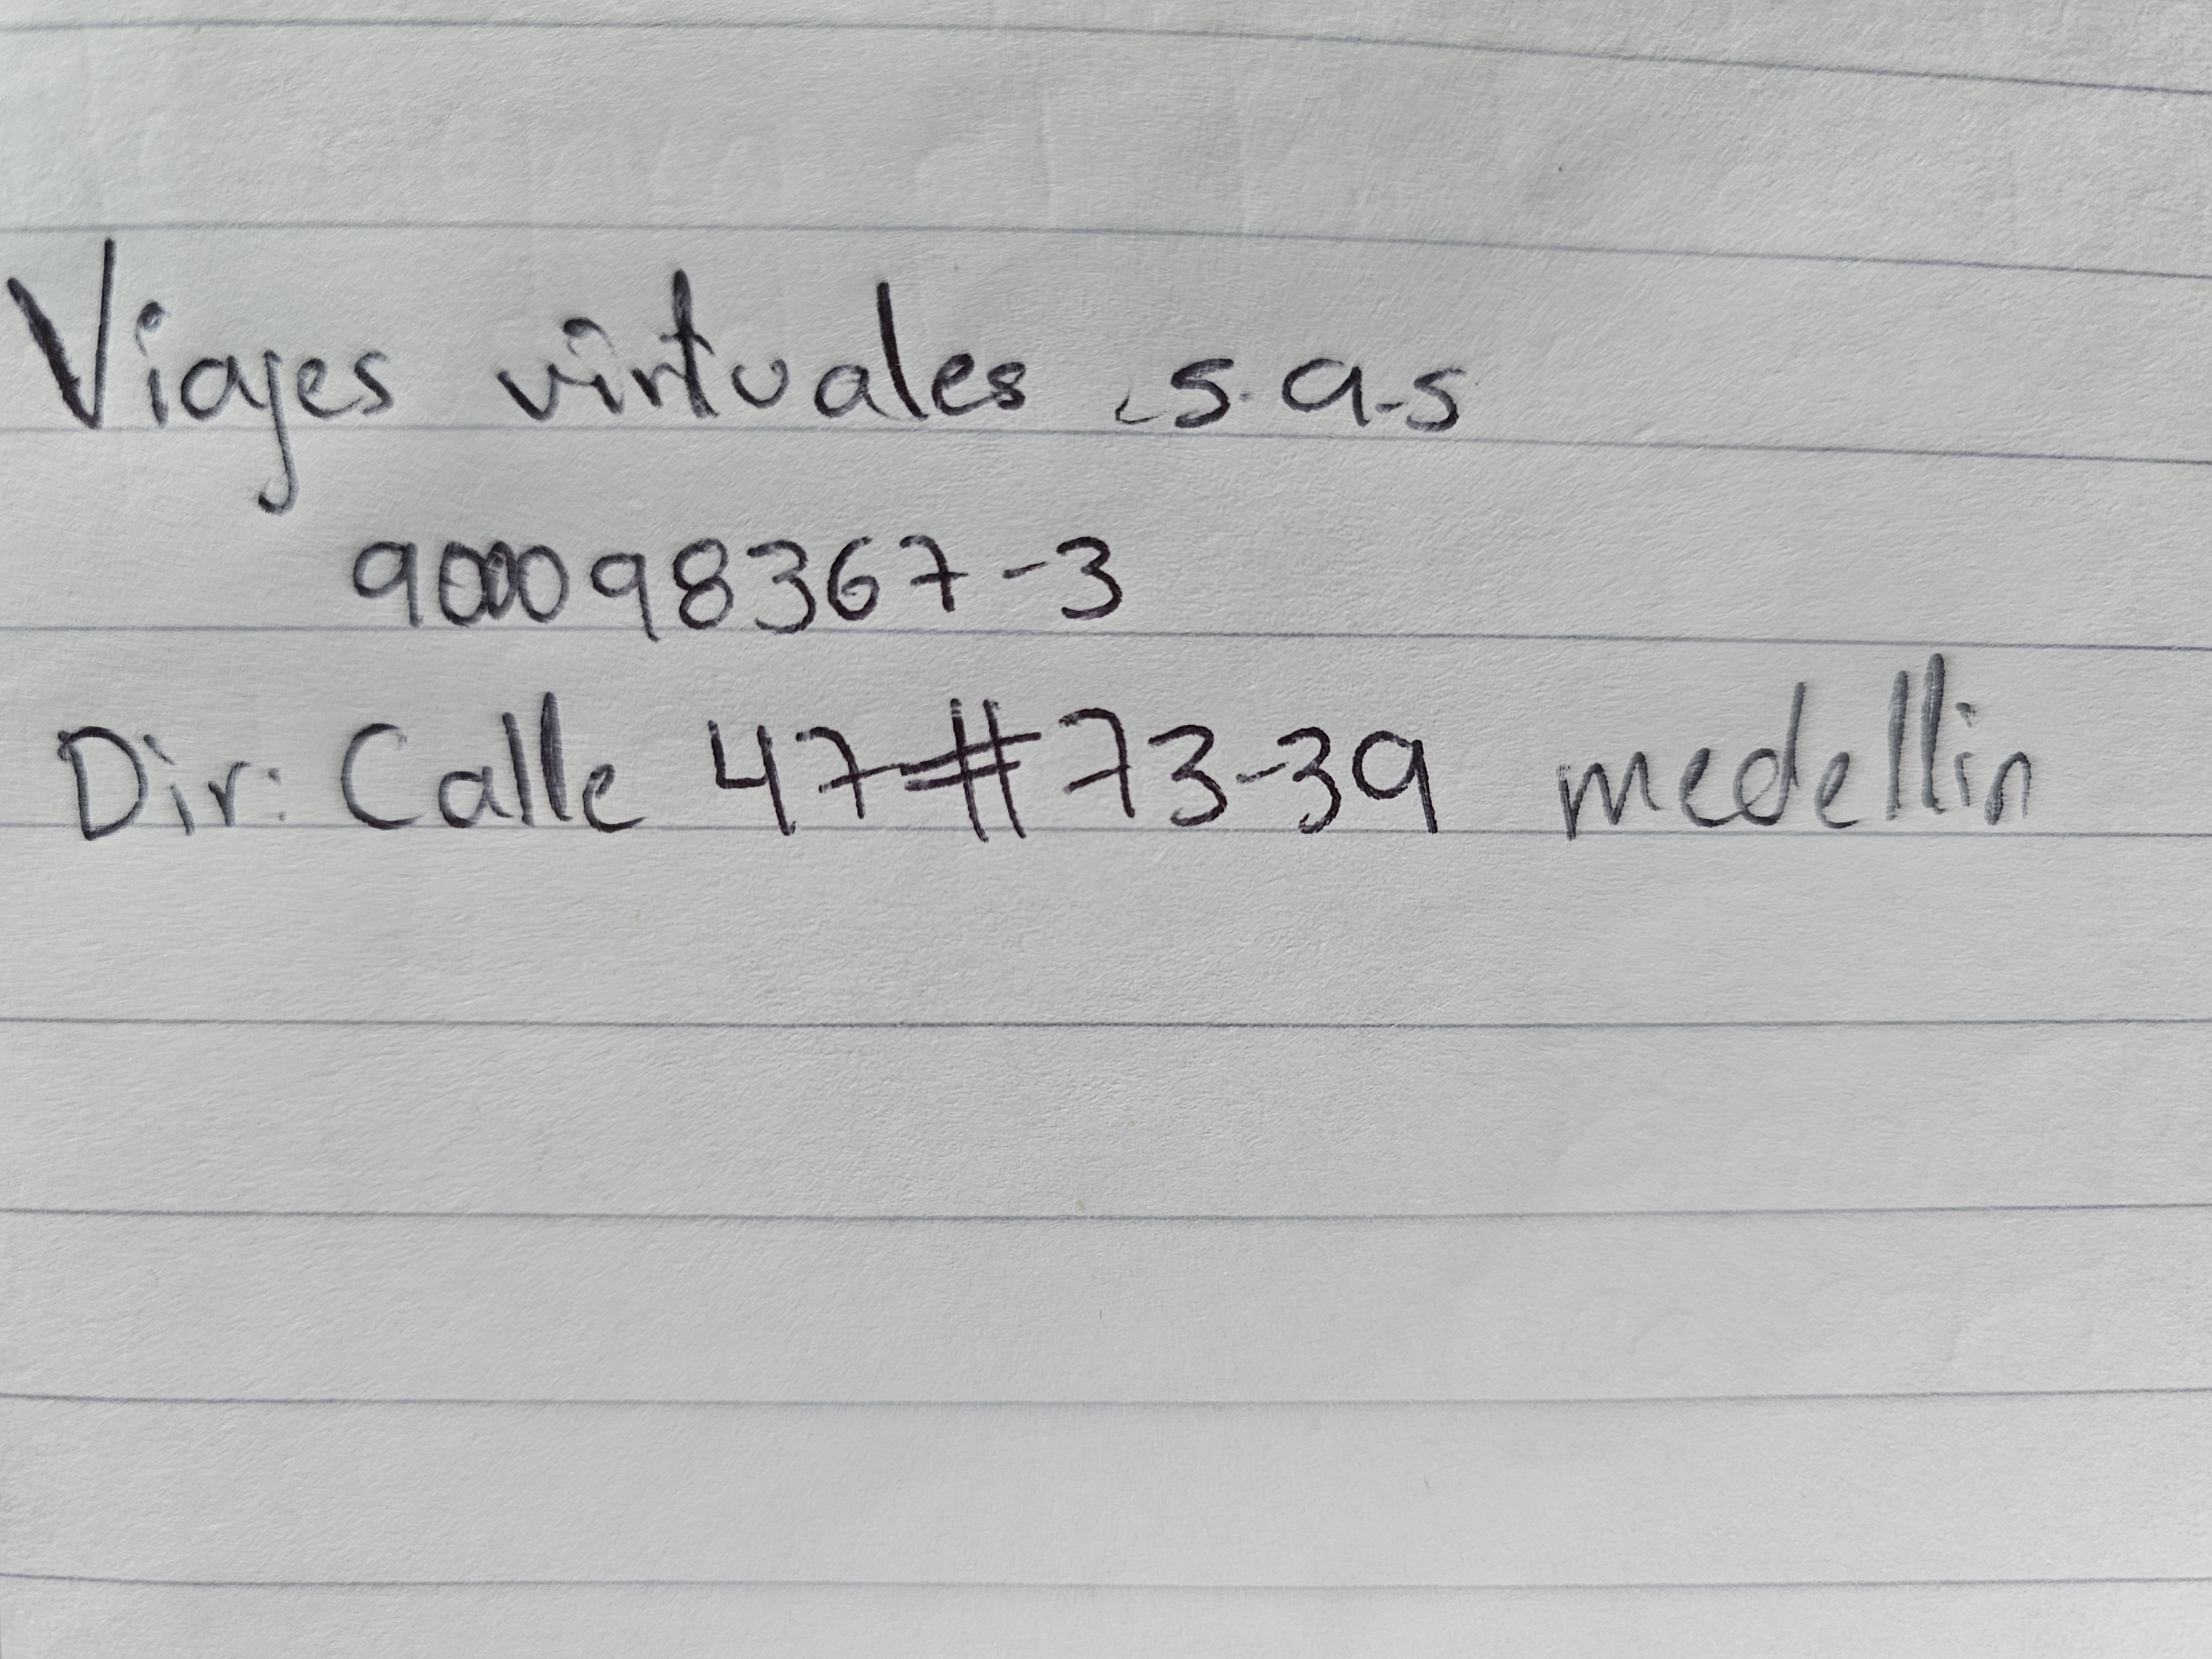 Viajes virtuales s.a.s
900098367-3
Dir: Calle 47#73-39 medellin